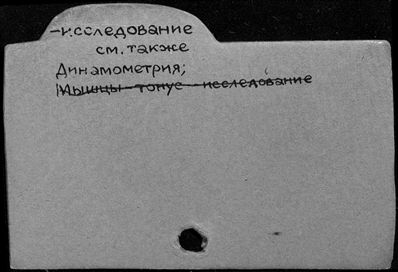 -исследование
см. также
Динамометрия;
Мышцы-тонус-исследование